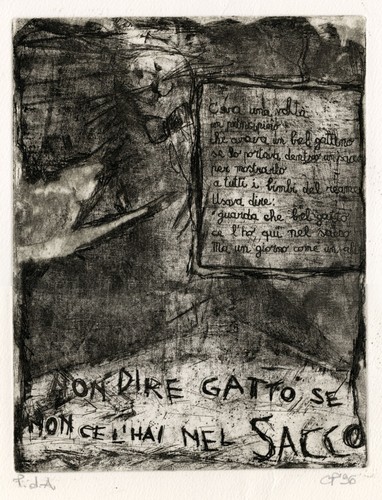 C'era una volta
un principino
che aveva un bel gattino
se lo portava dentro un
per mostrarlo
a tutti i bimbi del reame
Usava dire:
guarda che bel gatto
ce l'ho qui nel sacco
Ma un giorno come un
NON DIRE GATTO SE
NON CE L'HAI NEL SACCO
P.d.A
CP'96